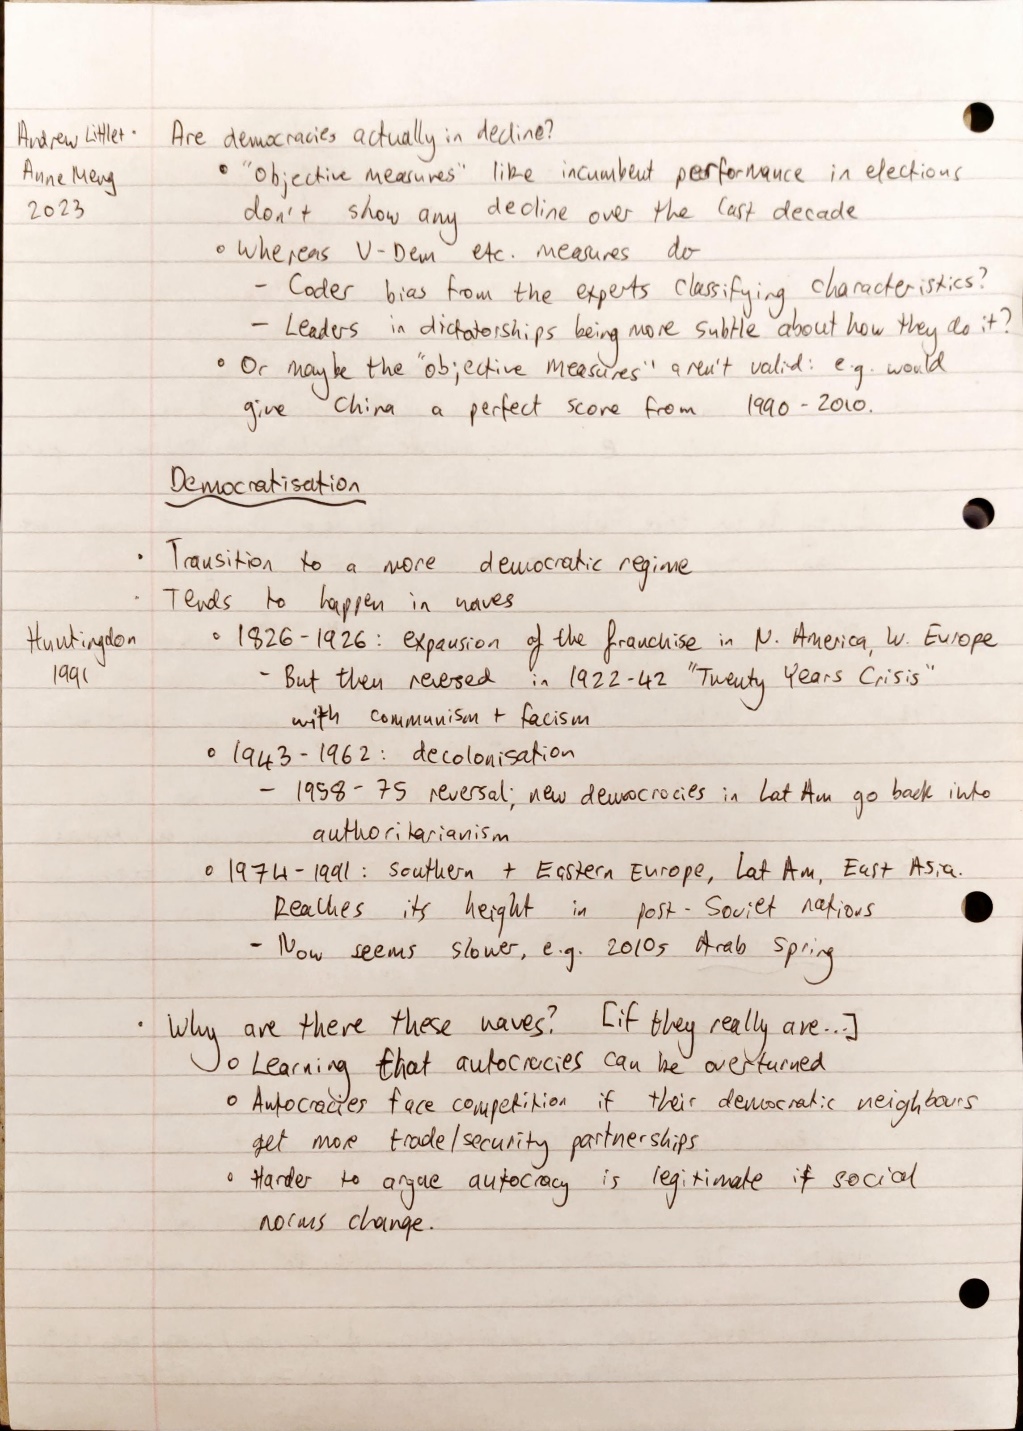 Andrew Littlet · Are democracies actually in decline?
Anne Meng
2023
◦ "Objective measures" like incumbent performance in elections
don't show any decline over the last decade
◦ Whereas V-Dem etc. measures do
– Coder bias from the experts classifying characteristics?
– Leaders in dictatorships being more subtle about how they do it?
◦ Or maybe the "objective measures" aren't valid: e.g. would
give China a perfect score from 1990-2010.
Democratisation
· Transition to a more democratic regime
· Tends to happen in waves
Huntingdon
1991
◦ 1826-1926: expansion of the franchise in N. America, W. Europe
- But then reversed in 1922-42 "Twenty Years Crisis"
with communism + facism
◦ 1943-1962: decolonisation
– 1958-75 reversal; new democrocies in Lat Am go back into
authoritarianism
◦ 1974-1991: Southern + Eastern Europe, Lat Am, East Asia.
Reaches its height in post-Soviet nations
- Now seems slower, e.g. 2010s Arab Spring
· Why are there these waves? [if they really are...]
◦ Learning that autocracies can be overturned
◦ Autocracies face competition if their democratic neighbours
get more trade/security partnerships
◦ Harder to argue autocracy is legitimate if social
norms change.